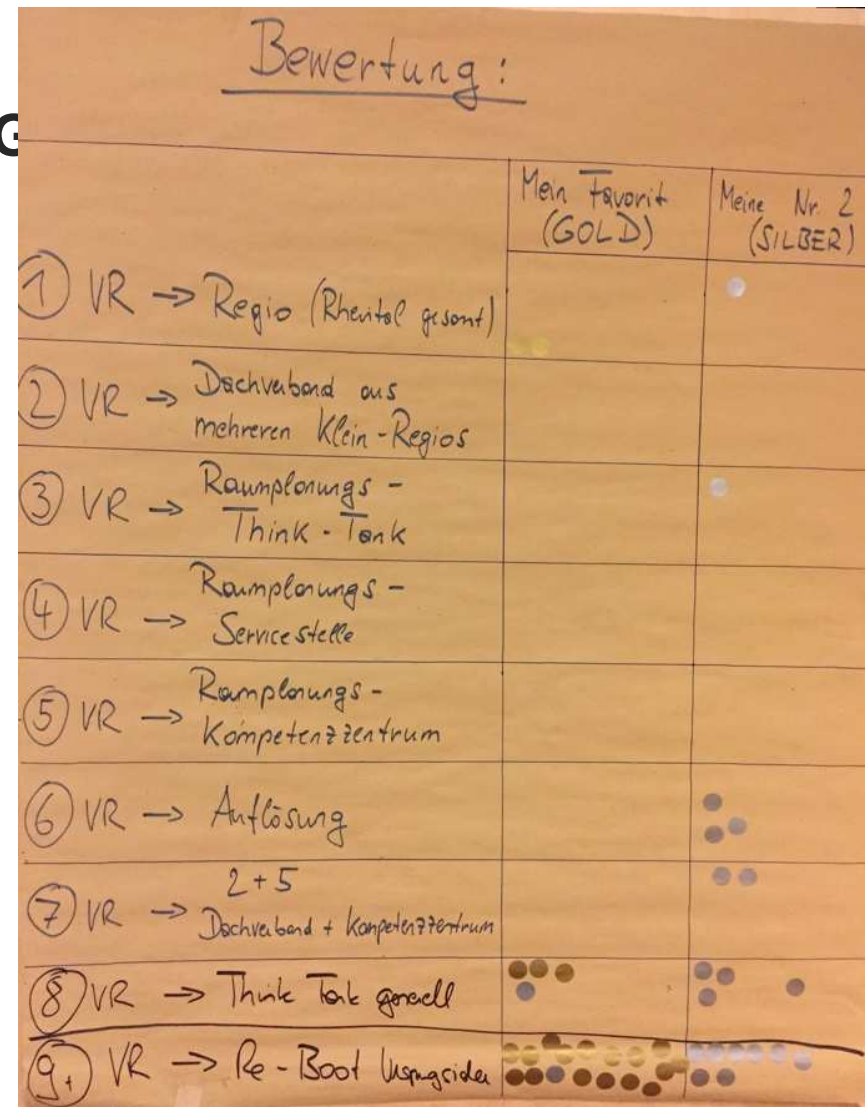 Bewertung :
G
Mein Favorit
(GOLD)
Meine Nr. 2
(SILBER)
1 VR → Regio (Rheintal gesamt)
2 VR → Dachverband aus
mehreren Klein-Regios
3 VR → Raumplanungs -
Think - Tank
4 VR → Raumplanungs -
Servicestelle
5 VR → Raumplanungs -
Kompetenzzentrum
6 VR → Auflösung
7 VR → 2 + 5
Dachverband + Kompetenzzentrum
8 VR → Think Tank generell
9. VR → Re-Boot